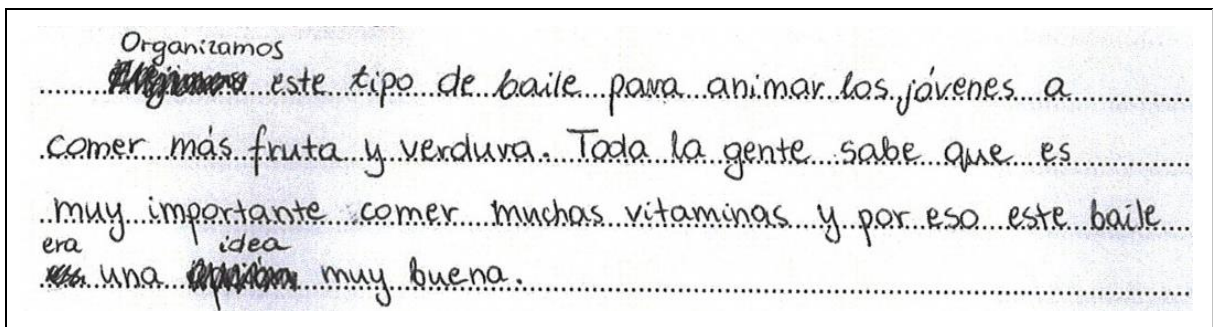 Organizamos
este tipo de baile para animar los jóvenes a
comer más fruta y verdura. Toda la gente sabe que es
muy importante comer muchas vitaminas y por eso este baile
era idea
una muy buena.